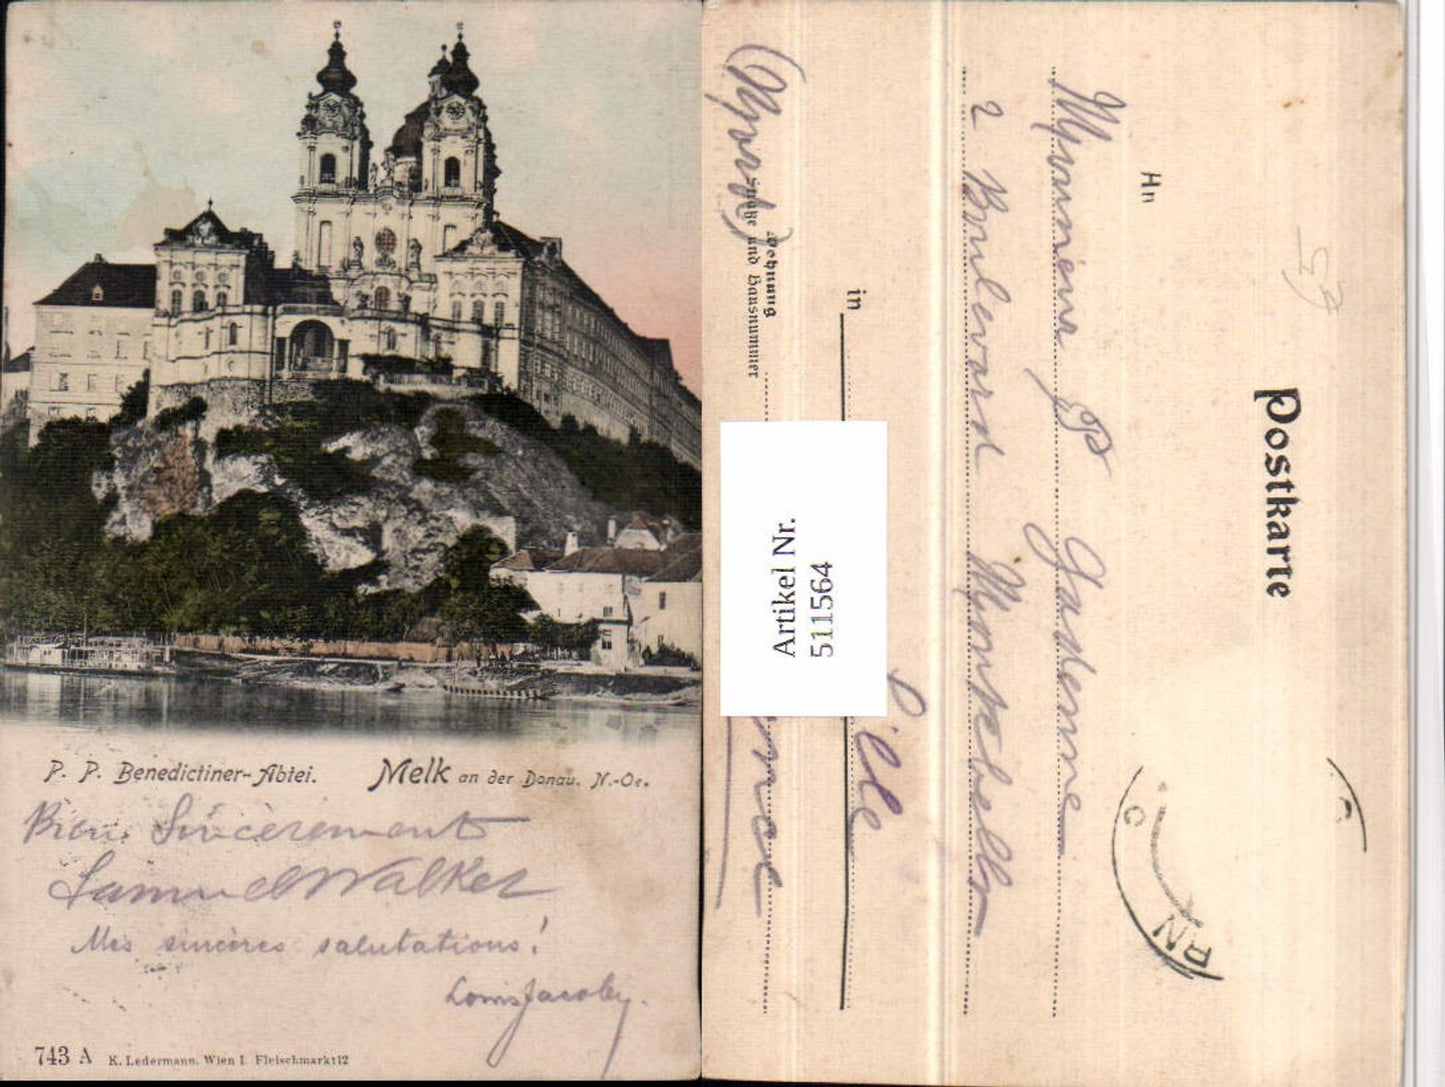 P. P. Benedictiner-Abtei. Melk an der Donau. N.-Oe.
Bien Sincèrement
Samuel Walker
Mes sincères salutations!
Louis Jacoby.
743 A K. Ledermann, Wien I. Fleischmarkt 12
Postkarte
An
Monsieur P Gadenne
2 Boulevard Montebello
Lille
in
(Nord)
Wohnung
Straße und Hausnummer
Artikel Nr.
511564